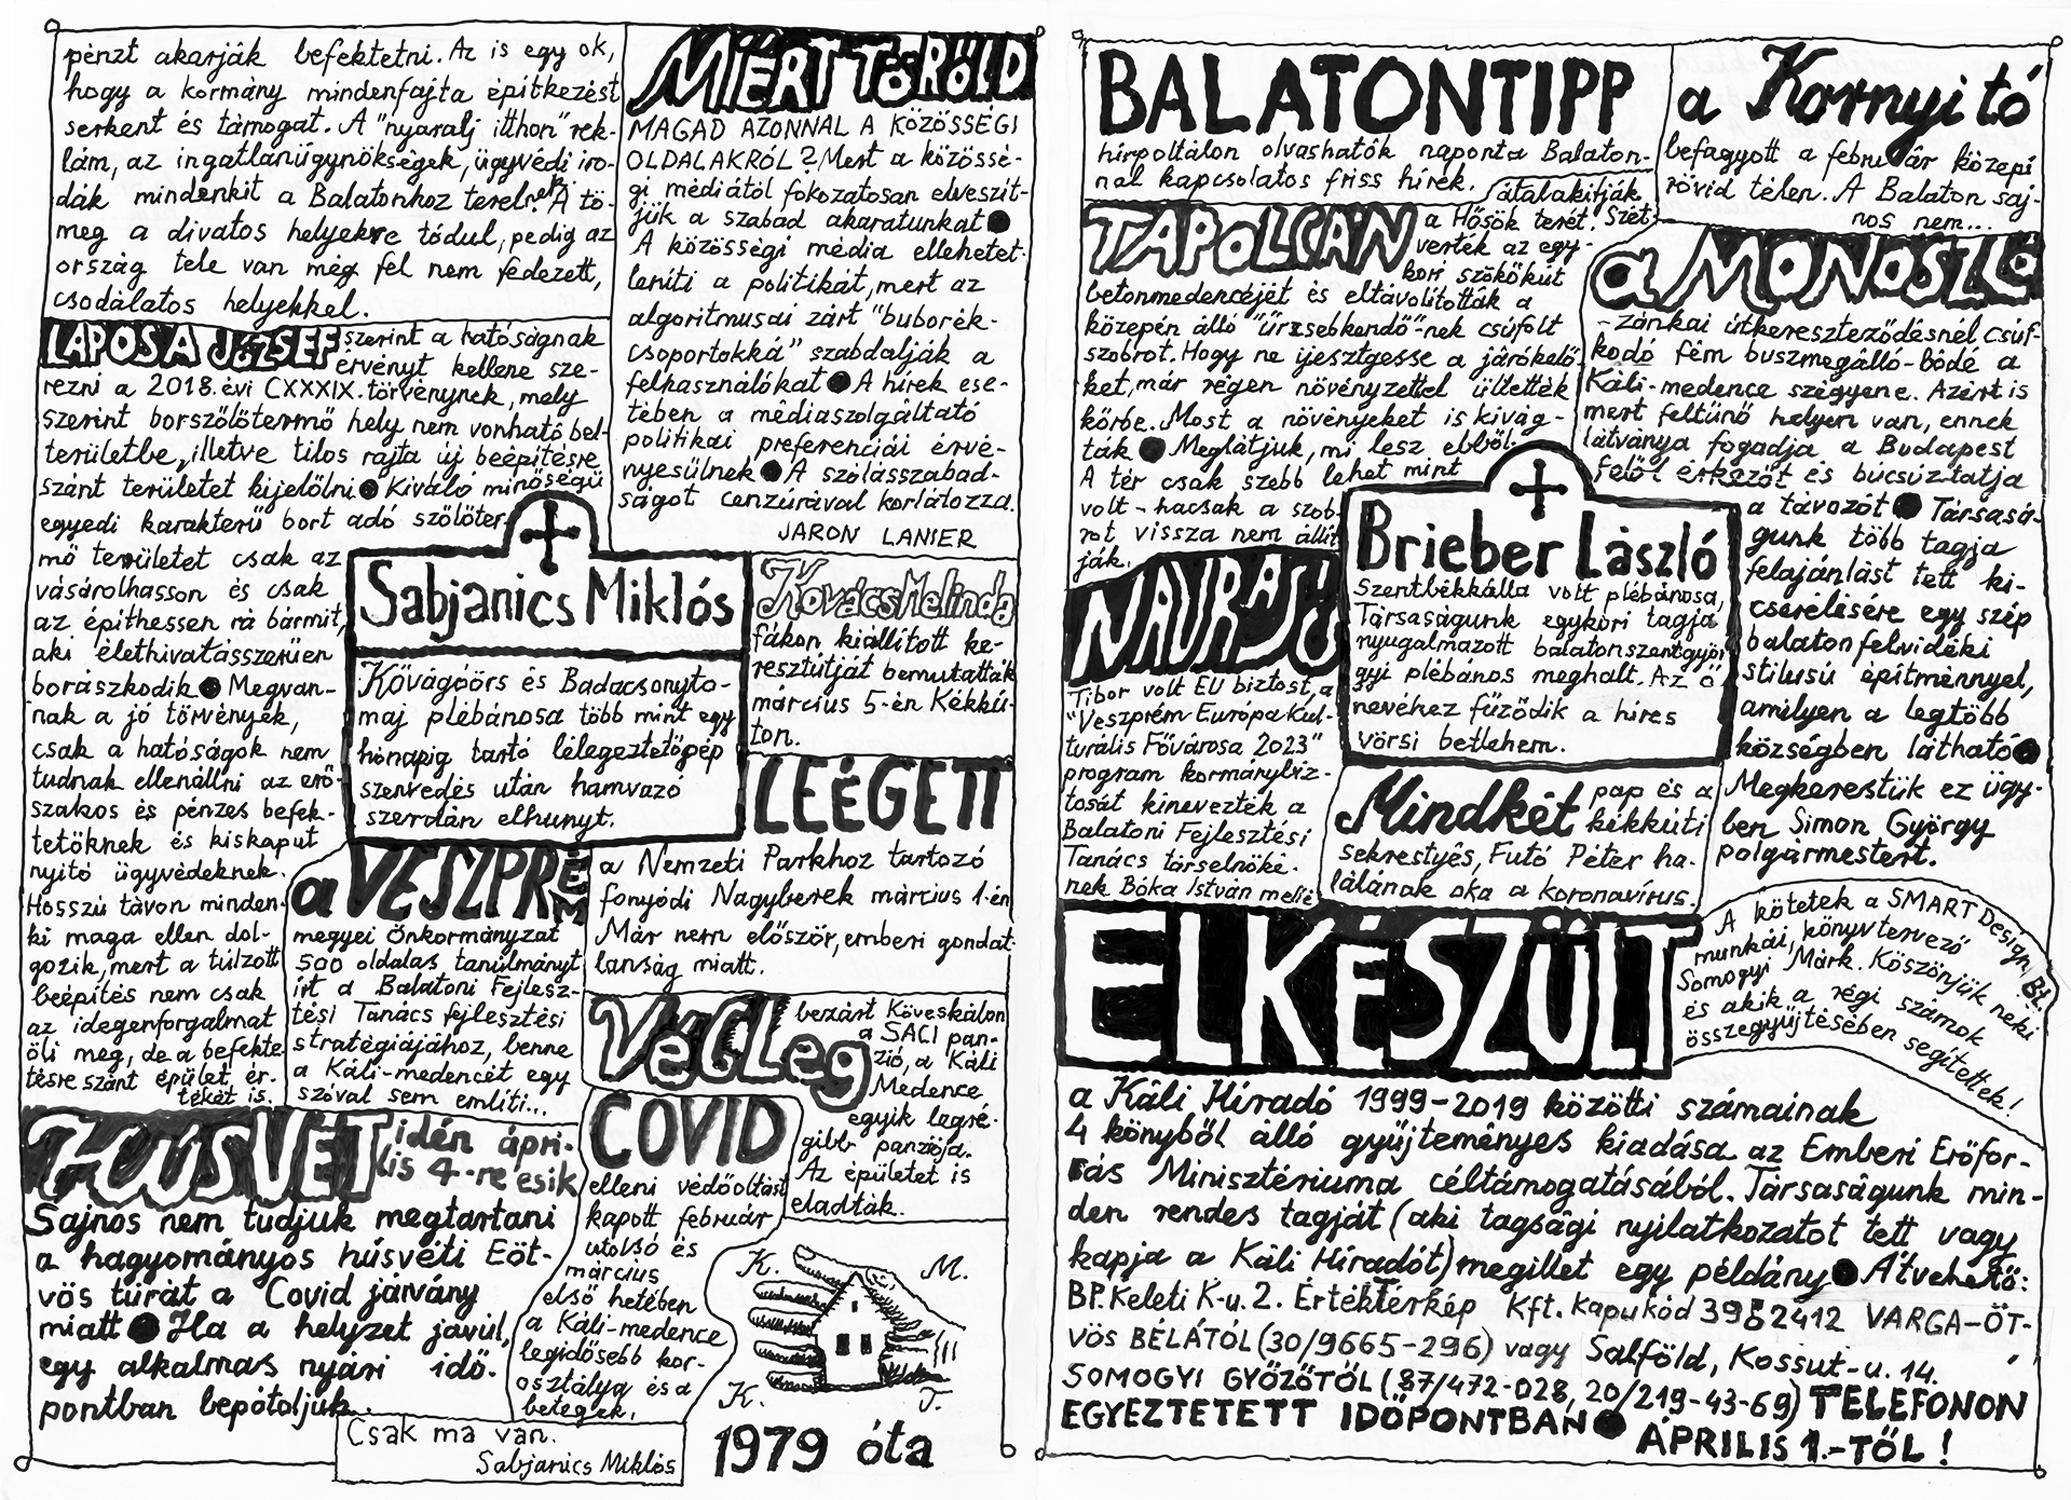 pénzt akarják befektetni. Az is egy ok,
hogy a kormány mindenfajta építkezést
serkent és támogat. A "nyaralj itthon" rek-
lám, az ingatlanügynökségek, ügyvédi iro-
dák mindenkit a Balatonhoz terelnek. A tö-
meg a divatos helyekre tódul, pedig az
ország tele van még fel nem fedezett,
csodálatos helyekkel.
LAPOSA JÓZSEF szerint a hatóságnak
érvényt kellene sze-
rezni a 2018. évi CXXXIX. törvénynek, mely
szerint borszőlőtermő hely nem vonható bel-
területbe, illetve tilos rajta új beépítésre
szánt területet kijelölni ● Kiváló minőségű
egyedi karakterű bort adó szőlőter-
mő területet csak az
vásárolhasson és csak
az építhessen rá bármit,
aki élethivatásszerűen
borászkodik ● Megvan-
nak a jó törvények,
csak a hatóságok nem
tudnak ellenállni az erő-
szakos és pénzes befek-
tetőknek és kiskaput
nyitó ügyvédeknek.
Hosszú távon minden-
ki maga ellen dol-
gozik, mert a túlzott
beépítés nem csak
az idegenforgalmat
öli meg, de a befekte-
tésre szánt épület ér-
tékét is.
HÚSVÉT idén ápri-
lis 4-re esik
Sajnos nem tudjuk megtartani
a hagyományos húsvéti Eöt-
vös túrát a Covid járvány
miatt ● Ha a helyzet javul,
egy alkalmas nyári idő-
pontban bepótoljuk.
Csak ma van.
Sabjanics Miklós
MIÉRT TÖRÖLD
MAGAD AZONNAL A KÖZÖSSÉGI
OLDALAKRÓL? Mert a közössé-
gi médiától fokozatosan elveszít-
jük a szabad akaratunkat ●
A közösségi média ellehetet-
leníti a politikát, mert az
algoritmusai zárt "buborék-
csoportokká" szabdalják a
felhasználókat ● A hírek ese-
tében a médiaszolgáltató
politikai preferenciái érvé-
nyesülnek ● A szólásszabad-
ságot cenzúrával korlátozza.
JARON LANIER
Sabjanics Miklós
Kővágóörs és Badacsonyto-
maj plébánosa több mint egy
hónapig tartó lélegeztetőgép
szenvedés után hamvazó
szerdán elhunyt.
Kovács Melinda
fákon kiállított ke-
resztútját bemutatták
március 5-én Kékkú-
ton.
LEÉGETT
a Nemzeti Parkhoz tartozó
fonyódi Nagyberek március 1-én
Már nem először, emberi gondat-
lanság miatt.
a VESZPRÉM
megyei Önkormányzat
500 oldalas tanulmányt
írt a Balatoni Fejlesz-
tési Tanács fejlesztési
stratégiájához, benne
a Káli-medencét egy
szóval sem említi...
VÉGLEG bezárt Köveskálon
a SACI pan-
zió, a Káli
Medence
egyik legré-
gibb panziója.
Az épületet is
eladták.
COVID
elleni védőoltást
kapott február
utolsó és
március
első hetében
a Káli-medence
legidősebb kor-
osztálya és a
betegek.
K. M.
K. T.
1979 óta
BALATONTIPP
hírpoltálon olvashatók naponta Balaton-
nal kapcsolatos friss hírek.
a Kornyi tó
befagyott a február közepi
rövid télen. A Balaton saj-
nos nem...
TAPOLCÁN átalakítják
a Hősök terét. Szét-
verték az egy-
kori szökőkút
betonmedencéjét és eltávolították a
közepén álló "űrzsebkendő"-nek csúfolt
szobrot. Hogy ne ijesztgesse a járókelő-
ket, már régen növényzettel ültették
körbe. Most a növényeket is kivág-
ták ● Meglátjuk, mi lesz ebből.
A tér csak szebb lehet mint
volt - hacsak a szob-
rot vissza nem állít-
ják.
a MONOSZLÓ
- Zánkai útkereszteződésnél csúf-
kodó fém buszmegálló-bódé a
Káli-medence szégyene. Azért is
mert feltűnő helyen van, ennek
látványa fogadja a Budapest
felől érkezőt és búcsúztatja
a távozót ● Társasá-
gunk több tagja
felajánlást tett ki-
cserélésére egy szép
balatonfelvidéki
stílusú építménnyel,
amilyen a legtöbb
községben látható ●
Megkerestük ez ügy-
ben Simon György
polgármestert.
NAVRASICS
Tibor volt EU biztost, a
"Veszprém Európa Kul-
turális Fővárosa 2023"
program kormánybiz-
tosát kinevezték a
Balatoni Fejlesztési
Tanács társelnöké-
nek Bóka István mellé
Brieber László
Szentbékkálla volt plébánosa,
Társaságunk egykori tagja
nyugalmazott balatonszentgyör-
gyi plébános meghalt. Az ő
nevéhez fűződik a híres
vörsi betlehem.
Mindkét pap és a
kékkúti
sekrestyés, Futó Péter ha-
lálának oka a koronavírus.
ELKÉSZÜLT
A kötetek a SMART Design Bt.
munkái, könyvtervező
Somogyi Márk. Köszönjük neki
és akik a régi számok
összegyűjtésében segítettek!
a Káli Híradó 1999-2019 közötti számainak
4 könyből álló gyűjteményes kiadása az Emberi Erőfor-
rás Minisztériuma céltámogatásából. Társaságunk min-
den rendes tagját (aki tagsági nyilatkozatot tett vagy
kapja a Káli Híradót) megillet egy példány ● Átvehető:
BP. Keleti K-u. 2. Értéktérkép Kft. Kapukód 3982412 VARGA-ÖT-
VÖS BÉLÁTÓL (30/9665-296) vagy Salföld, Kossut-u. 14.
SOMOGYI GYŐZŐTŐL (87/472-028, 20/219-43-69) TELEFONON
EGYEZTETETT IDŐPONTBAN ● ÁPRILIS 1.-TŐL!